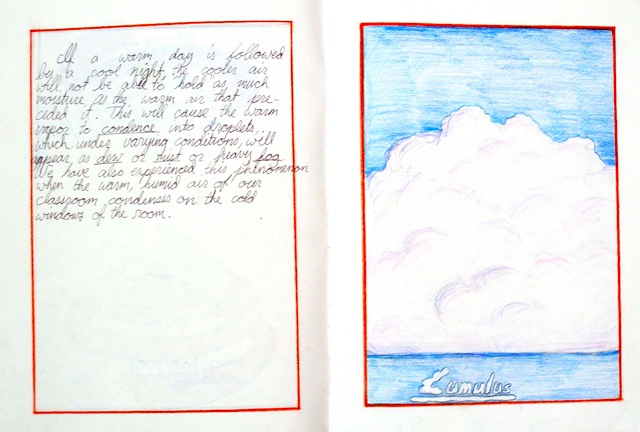 If a warm day is followed
by a cool night, the cooler air
will not be able to hold as much
moisture as the warm air that pre-
ceded it. This will cause the warm
vapor to condence into droplets
which, under varying conditions, will
appear as dew or mist or heavy fog.
We have also experienced this phenomenon
when the warm, humid air of our
classroom condenses on the cold
windows of the room.
Cumulus